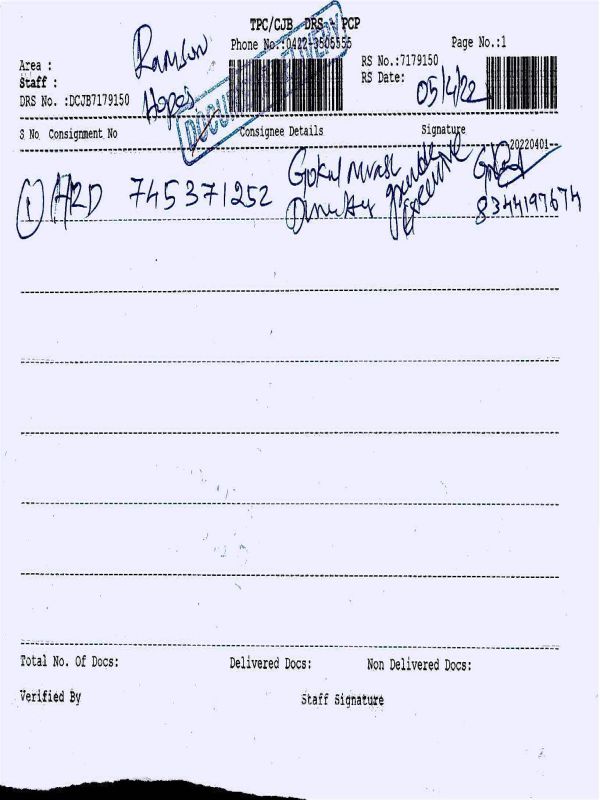 TPC/CJB DRS PCP
Phone No.:0422-3506555
Page No.:1
Area :
Ramson
Staff :
RS No.:7179150
RS Date:
05/4/22
DRS No. :DCJB7179150
Hopes
S No Consignment No Consignee Details Signature
20220401
1 745371252 Gokul
8344197674
Total No. Of Docs: Delivered Docs: Non Delivered Docs:
Verified By Staff Signature